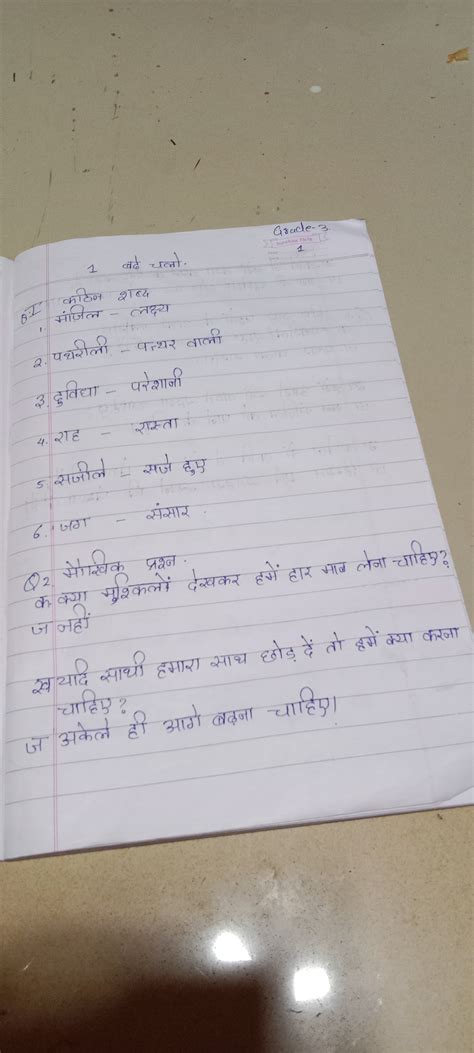 Grade-3
1
1 बढ़े चलो.
Q1 कठिन शब्द
1. मंजिल - लक्ष्य
2. पथरीली - पत्थर वाली
3. दुविधा - परेशानी
4. राह - रास्ता
5. सजीले - सजे हुए
6. जग - संसार
Q2 मौखिक प्रश्न.
क क्या मुश्किलों देखकर हमें हार मान लेना चाहिए?
ज नहीं
ख यदि साथी हमारा साथ छोड़ दें तो हमें क्या करना
चाहिए?
ज अकेले ही आगे बढ़ना चाहिए।